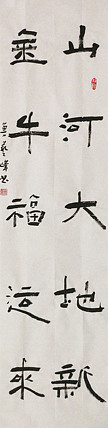 山河大地新
金牛福运来